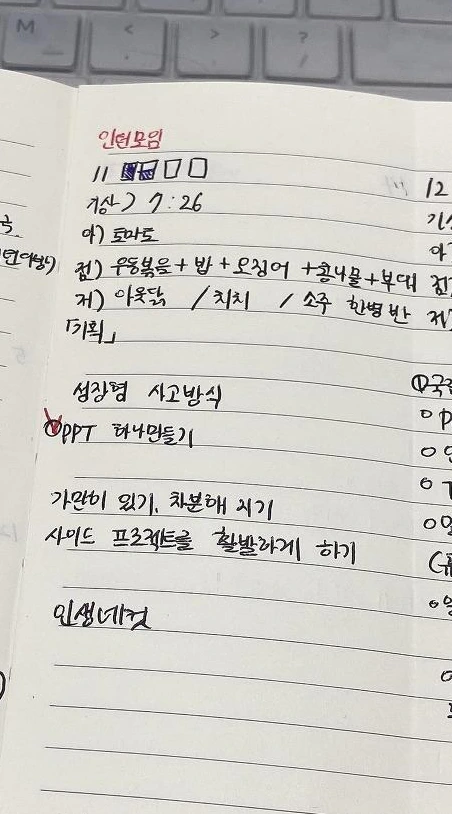 M
인턴모임
11
기상) 7:26
아) 토마토
점) 우동볶음 + 밥 + 오징어 + 콩나물 + 부대
저) 아웃닭 / 치치 / 소주 한병 반
「기획」
성장형 사고방식
PPT 하나만들기
가만히 있기, 차분해 지기
사이드 프로젝트를 활발하게 하기
인생네컷
12